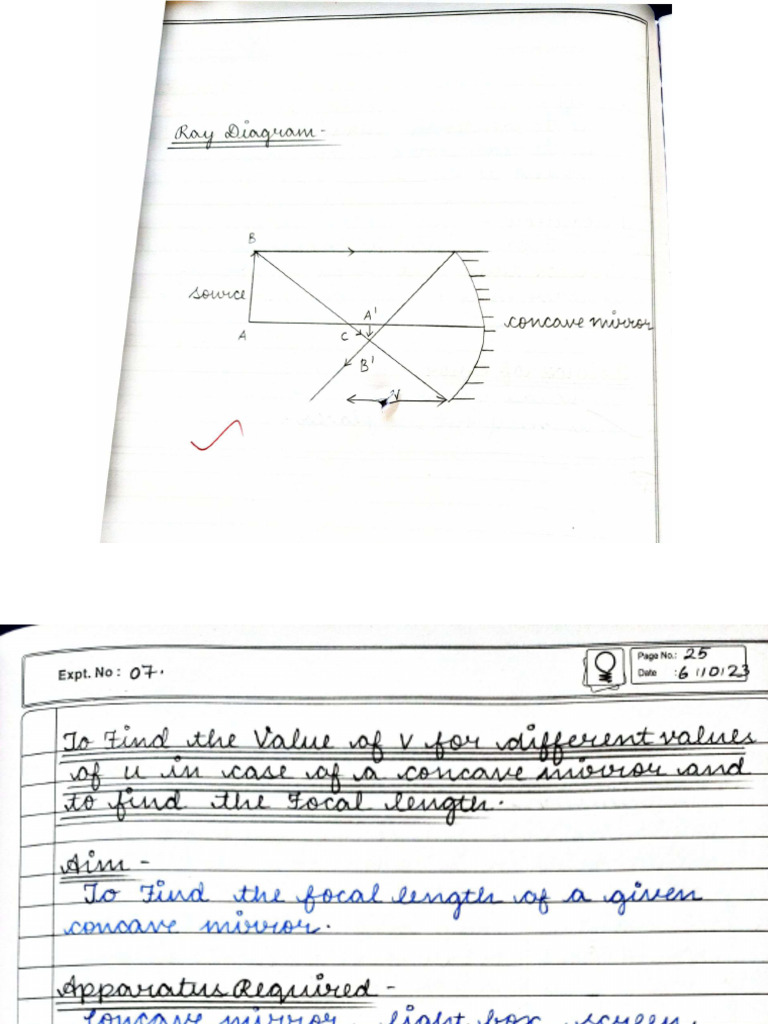 Ray Diagram -
B
source
A'
concave mirror
A
C
B'
V
Expt. No : 07.
Page No.: 25
Date : 6 10 23
To Find the Value of v for different values
of u in case of a concave mirror and
to find the Focal length.
Aim -
To Find the focal length of a given
concave mirror.
Apparatus Required -
Concave mirror, light box, screen,